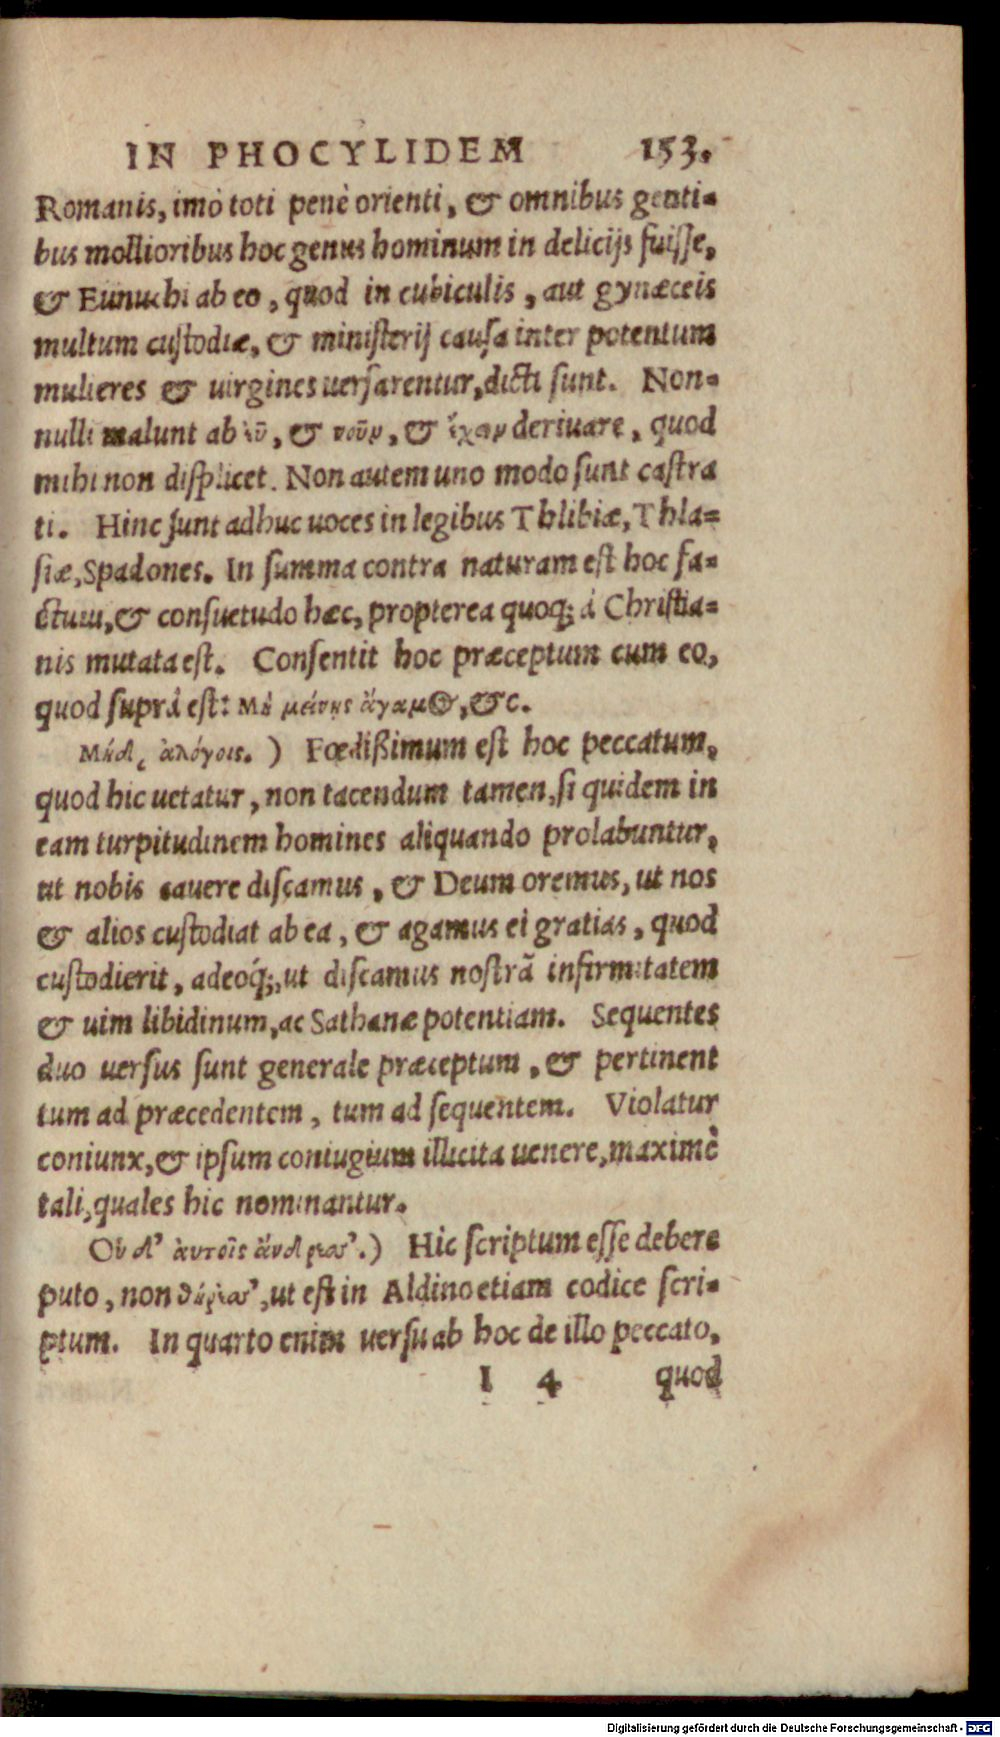 IN PHOCYLIDEM 153.
Romanis, imò toti penè orienti, & omnibus genti-
bus mollioribus hoc genus hominum in delicijs fuisse,
& Eunuchi ab eo, quod in cubiculis, aut gynæceis
multum custodiæ, & ministerij causa inter potentum
mulieres & uirgines uersarentur, dicti sunt. Non-
nulli malunt ab εὖ, & νοῦν, & ἔχειν deriuare, quod
mihi non displicet. Non autem uno modo sunt castra
ti. Hinc sunt adhuc uoces in legibus Thlibiæ, Thla-
siæ, Spadones. In summa contra naturam est hoc fa-
ctum, & consuetudo hæc, propterea quoq; à Christia-
nis mutata est. Consentit hoc præceptum cum eo,
quod suprà est: Μὴ μείνῃς ἄγαμος, &c.
Μηδ' ἀλόγοις.) Fœdißimum est hoc peccatum,
quod hic uetatur, non tacendum tamen, si quidem in
eam turpitudinem homines aliquando prolabuntur,
ut nobis cauere discamus, & Deum oremus, ut nos
& alios custodiat ab ea, & agamus ei gratias, quod
custodierit, adeoq́;, ut discamus nostrã infirmitatem
& uim libidinum, ac Sathanæ potentiam. Sequentes
duo uersus sunt generale præceptum, & pertinent
tum ad præcedentem, tum ad sequentem. Violatur
coniunx, & ipsum coniugium illicita uenere, maximè
tali, quales hic nominantur.
Οὐδ' αὐτοῖς ἄνδρεσσ'.) Hic scriptum esse debere
puto, non , ut est in Aldino etiam codice scri-
ptum. In quarto enim uersu ab hoc de illo peccato,
I 4 quod
Digitalisierung gefördert durch die Deutsche Forschungsgemeinschaft - DFG